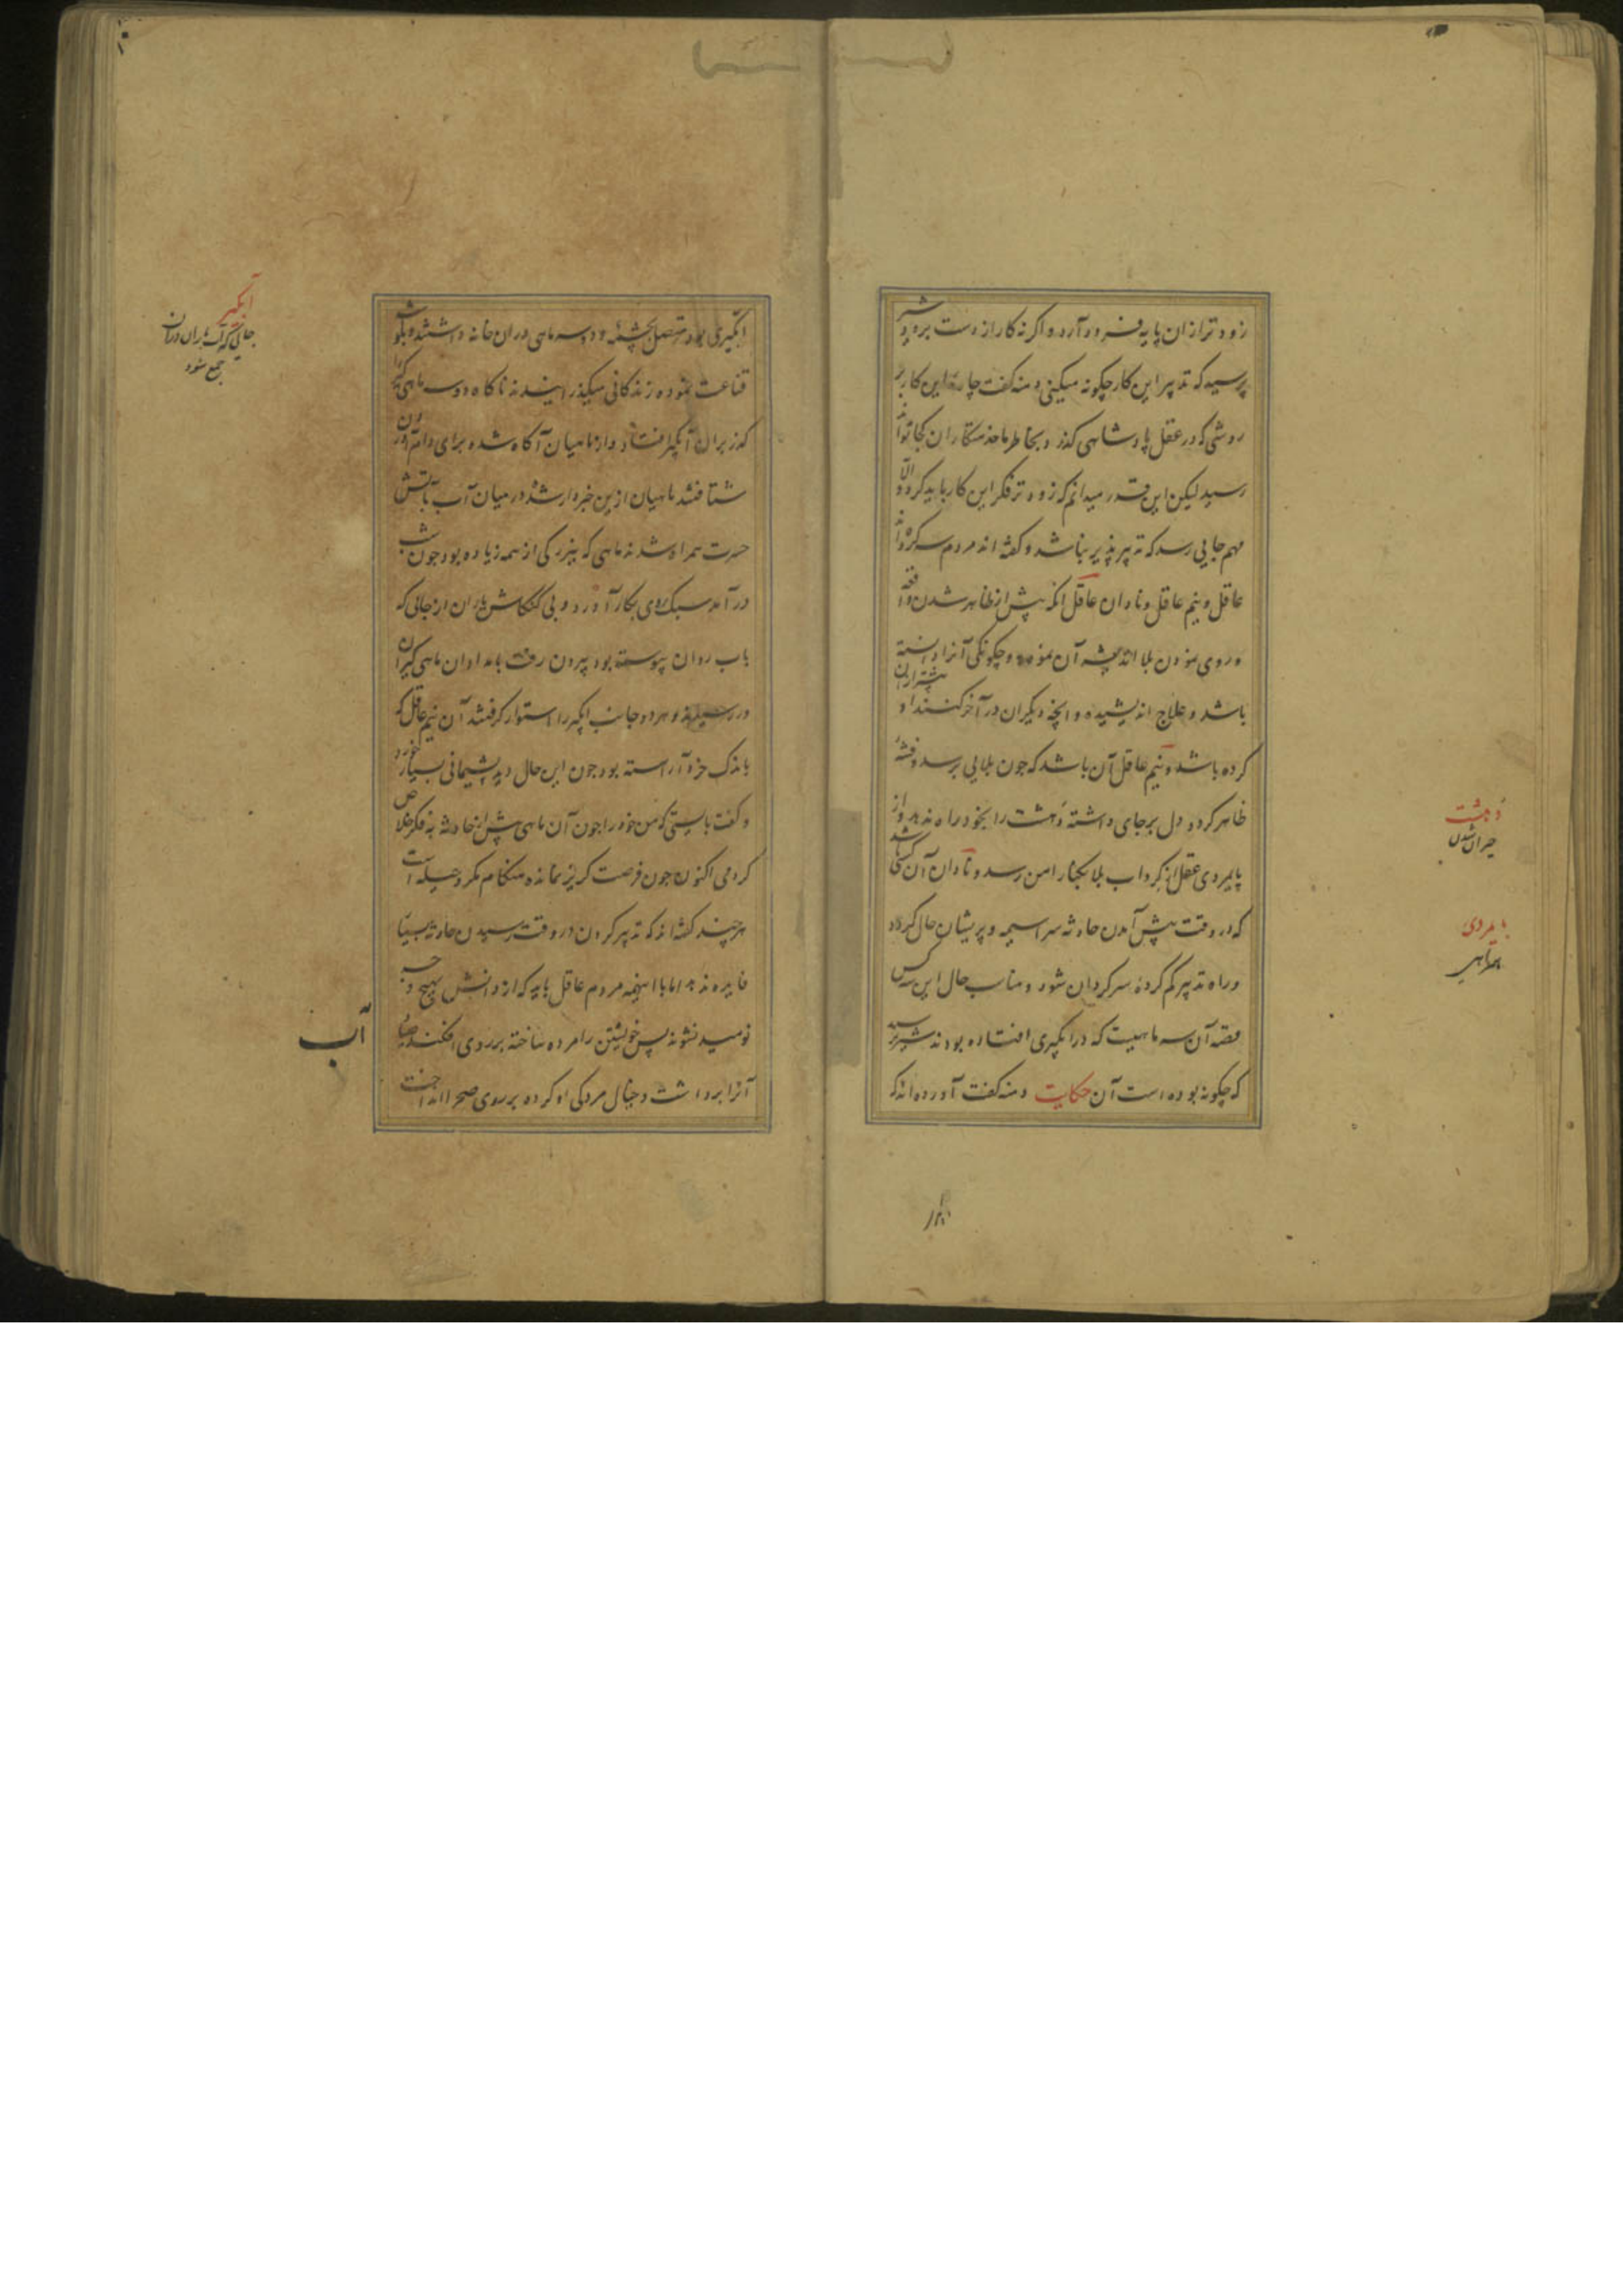 زودتر ازان پایه فرود آرد و اگر نه کار از دست برود شیر
پرسید که تدبیر این کار چگونه میکنی دمنه گفت چارهٔ این کار بر
روشی که در عقل پادشاهی گذرد بخاطر ما خدمتگاران کجا تواند
رسید لیکن این قدر میدانم که زودتر فکر این کار باید کرد و الّا
مهم جایی رسد که تدبیر پذیر نباشد و گفته اند مردم سه گروه اند
عاقل و نیم عاقل و نادان عاقل آنکه پیش از ظاهر شدن واقعه
و روی نمودن بلا اندیشه آن نموده و چگونگی آنرا دانسته
باشد و علاج اندیشیده و انچه دیگران در آخر کنند او پیشتر ازان
کرده باشد و نیم عاقل آن باشد که چون بلایی برسد و فتنه
ظاهر گردد دل برجای داشته دهشت را بخود راه ندهد و از
پایمردی عقل از گرداب بلا بکنار امن رسد و نادان آن کس باشد
که در وقت پیش آمدن حادثه سراسیمه و پریشان حال گردد
و راه تدبیر گم کرده سرگردان شود و مناسب حال این سه کس
قصه آن سه ماهیست که در ابگیری افتاده بودند شیر پرسید
که چگونه بوده است آن حکایت دمنه گفت آورده اند که
دهشت
حیران شدن
پایمردی
همراهی
ابگیری بود متصل بچشمه و در سه ماهی دران خانه داشتند و بگوشه
قناعت نموده زندگانی میگذرانیدند ناگاه دو سه ماهی گیر را
گذر بران آبگیر افتاد و از ماهیان آگاه شده برای دام آوردن
شتافتند ماهیان ازین خبردار شده در میان آب باتش
حسرت همراه شدند ماهی که بزیرکی از همه زیاده بود چون شب
درآمد سبک روی بکار آورد و بی کنگاش یاران از جانی که
باب روان پیوسته بود بیرون رفت بامدادان ماهی گیران
در رسیدند و هر دو جانب ابگیر را استوار گرفتند آن نیم عاقل که
باندک خرد آراسته بود چون این حال دید پشیمانی بسیار خورد
و گفت بایستی که من خود را چون آن ماهی پیش از حادثه بفکر خلاص
کردمی اکنون چون فرصت گریز نمانده هنگام مکر و حیله است
هر چند گفته اند که تدبیر کردن در وقت رسیدن حادثه بسیار
فایده ندهد اما با اینهمه مردم عاقل باید که از دانش بهیچ وجه
نومید نشوند پس خویشتن را مرده ساخته بر روی افکند صیاد
آنرا برداشت و خیال مردگی او کرده بر روی صحرا انداخت
آب
آبگیر
جائی که آب باران دران
جمع شود